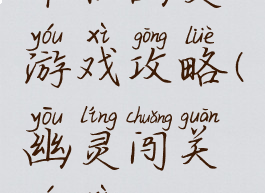 yóu xì gōng lüè
游戏攻略(
yōu líng chuǎng guān
幽灵闯关